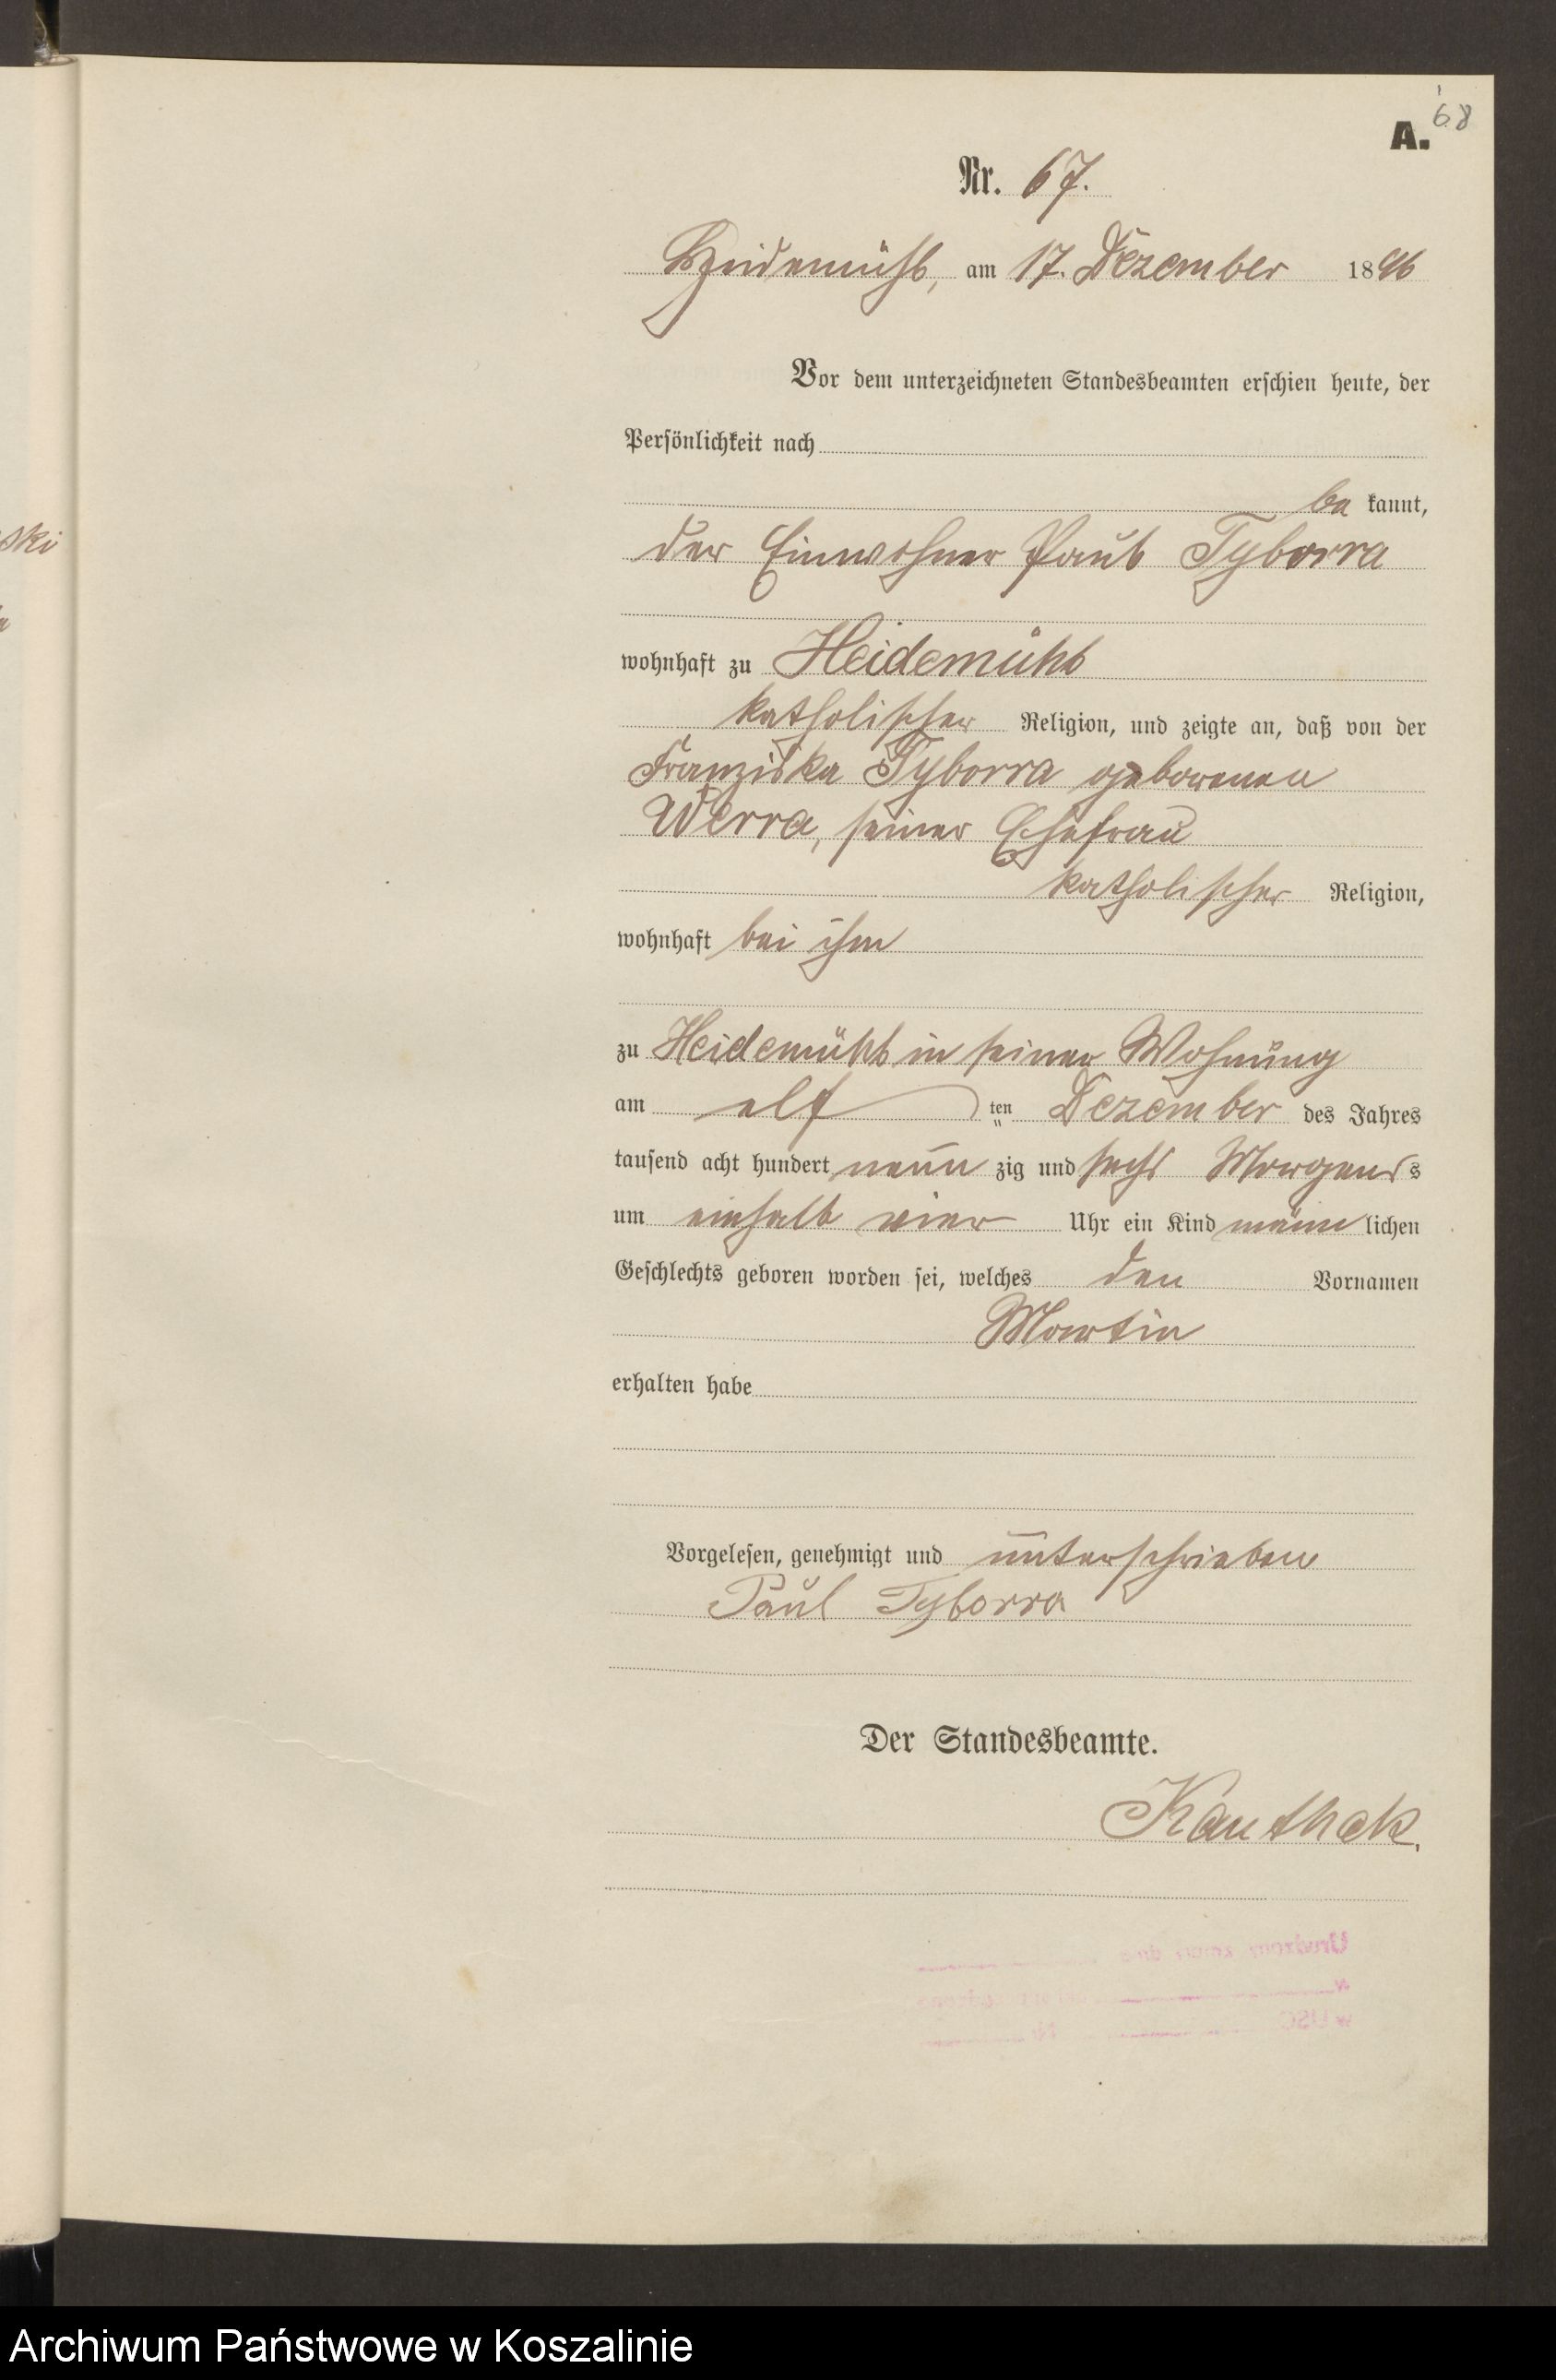 68
A.
Nr. 67.
Heidemühl, am 17. Dezember 1896
Vor dem unterzeichneten Standesbeamten erschien heute, der
Persönlichkeit nach
be kannt,
der Einwohner Paul Tyborra
wohnhaft zu Heidemühl
katholischer Religion, und zeigte an, daß von der
Franziska Tyborra geborenen
Werra, seiner Ehefrau
katholischer Religion,
wohnhaft bei ihm
zu Heidemühl in seiner Wohnung
am elf ten Dezember des Jahres
tausend acht hundert neun zig und sechs Morgens s
um einhalb vier Uhr ein Kind männ lichen
Geschlechts geboren worden sei, welches den Vornamen
Martin
erhalten habe
Vorgelesen, genehmigt und unterschrieben
Paul Tyborra
Der Standesbeamte.
Kauthak.
ski
Archiwum Państwowe w Koszalinie